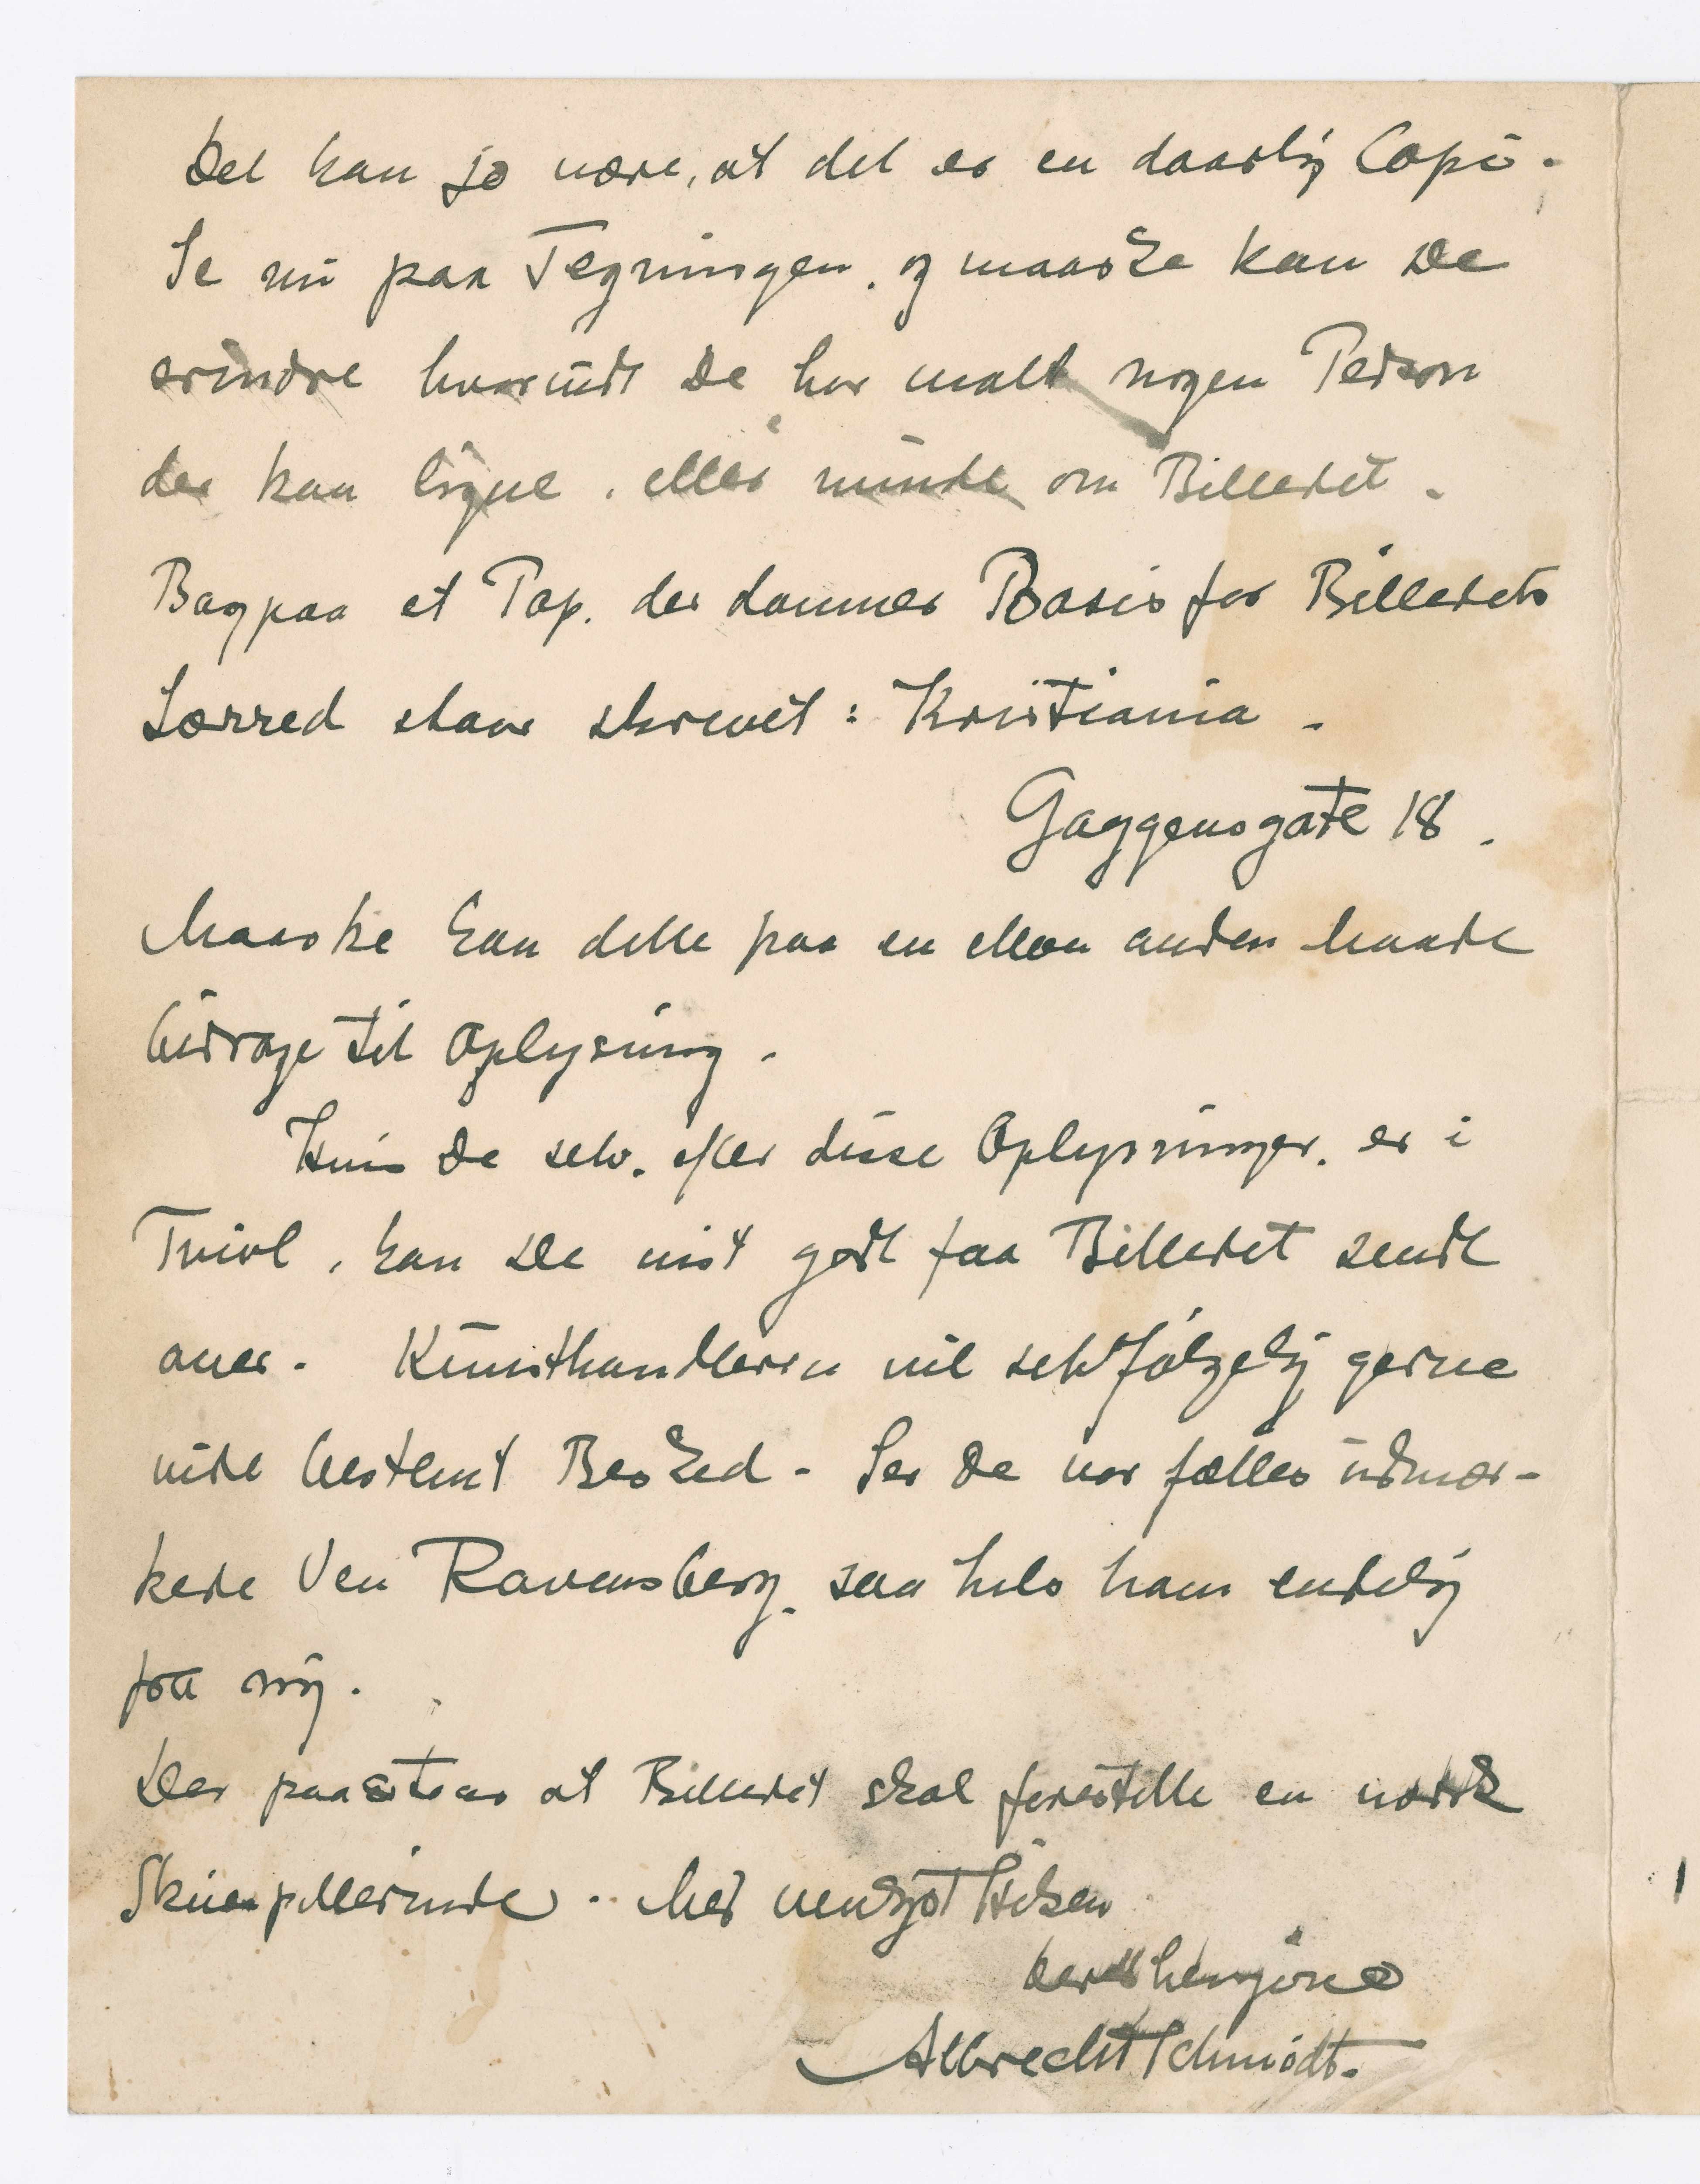 Det kan jo være, at det er en daarlig Copi.
Se nu paa Tegningen, og maaske kan De
erindre hvorvidt De har malt nogen Person
der kan ligne, eller minde om Billedet.
Bag paa et Pap. der danner Basis for Billedets
Lærred staar skrevet: Kristiania.
Gaggensgate 18.
Maaske kan dette paa en eller anden Maade
bidrage til Oplysning.
Hvis De selv. efter disse Oplysninger. er i
Tvivl, kan De vist godt faa Billedet sendt
over. Kunsthandleren vil selvfølgelig gerne
vide bestemt Besked. Ser De vor fælles udmær-
kede Ven Ravensberg, saa hils ham endelig
fra mig.
Der paastaas at Billedet skal forestille en norsk
Skuespillerinde. Med venligst Hilsen
Deres hengivne
Albrecht Schmidt.